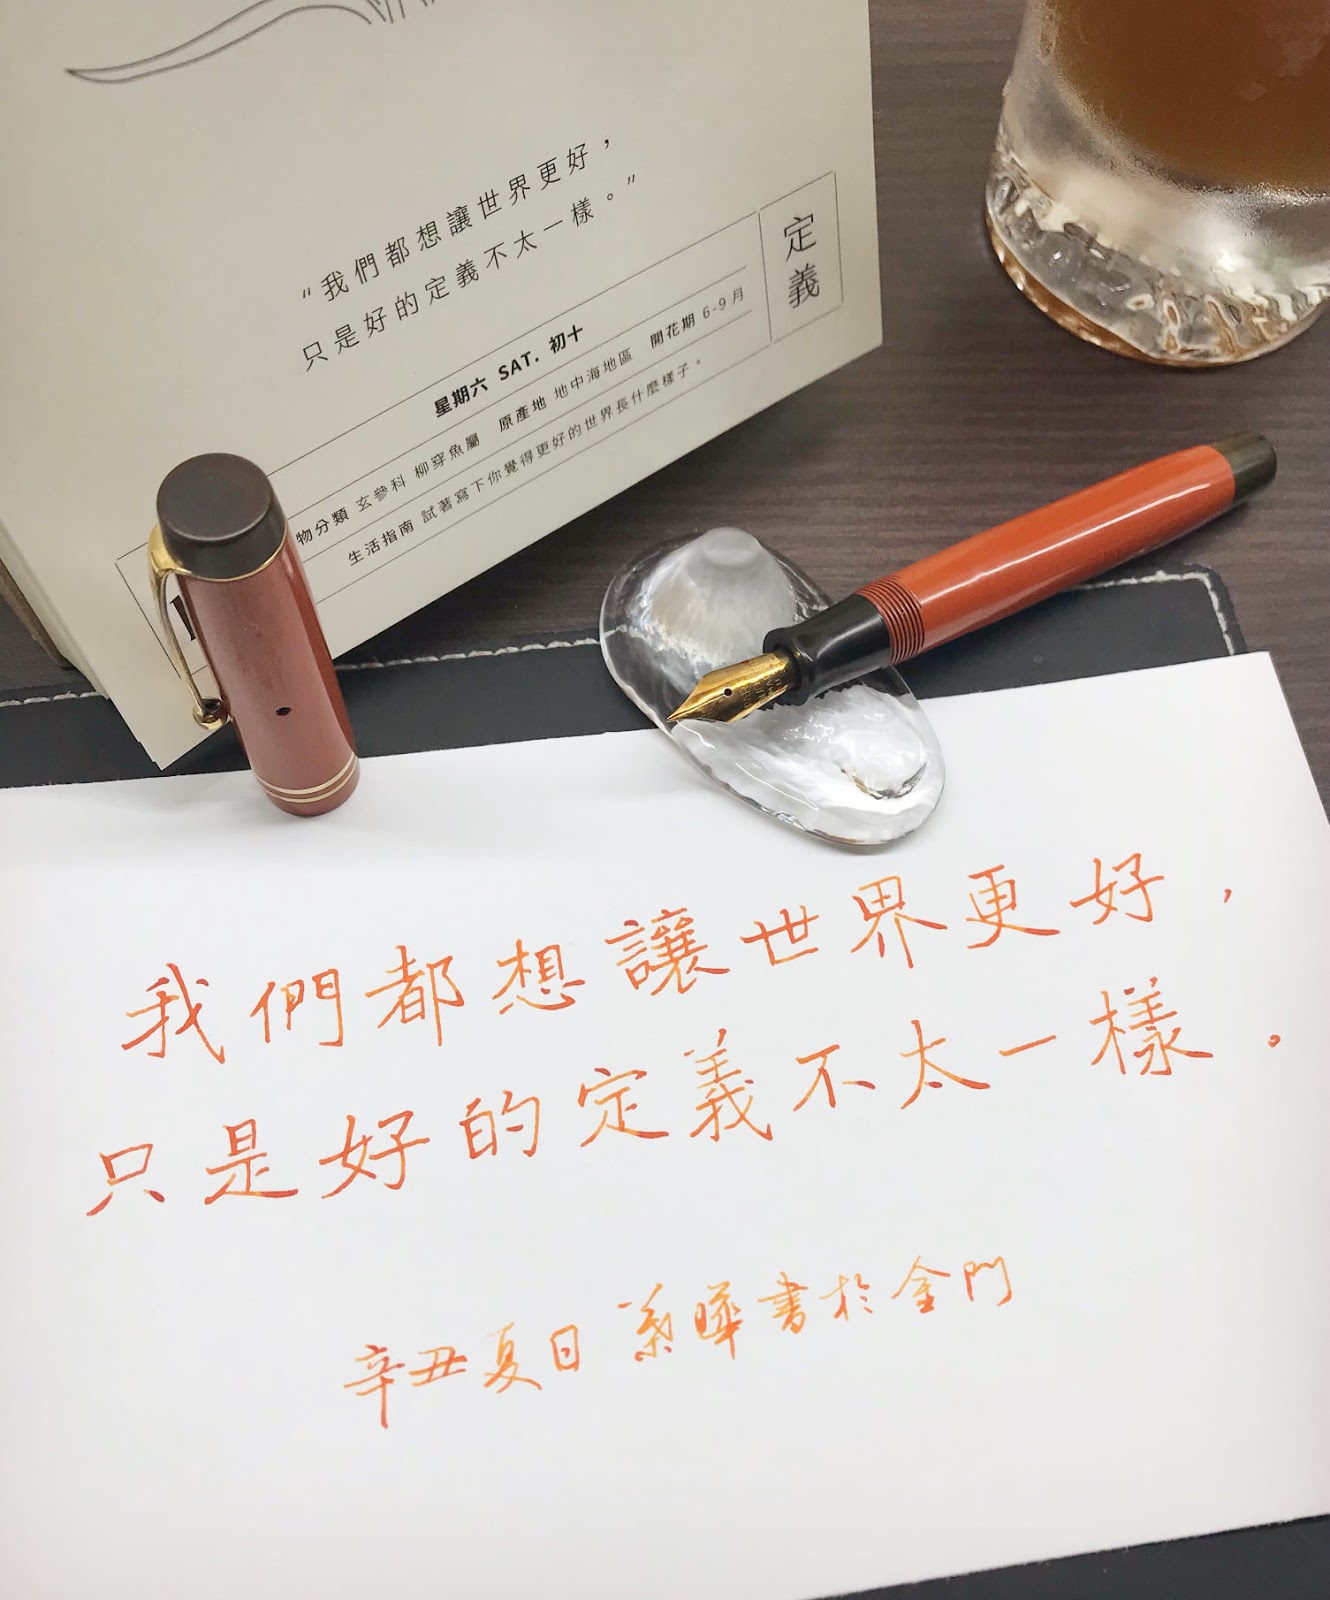 “我們都想讓世界更好，
只是好的定義不太一樣。”
定義
星期六 SAT. 初十
物分類 玄參科 柳穿魚屬 原產地 地中海地區 開花期 6-9月
生活指南 試著寫下你覺得更好的世界長什麼樣子。
我們都想讓世界更好，
只是好的定義不太一樣。
辛丑夏日 曄書於金門